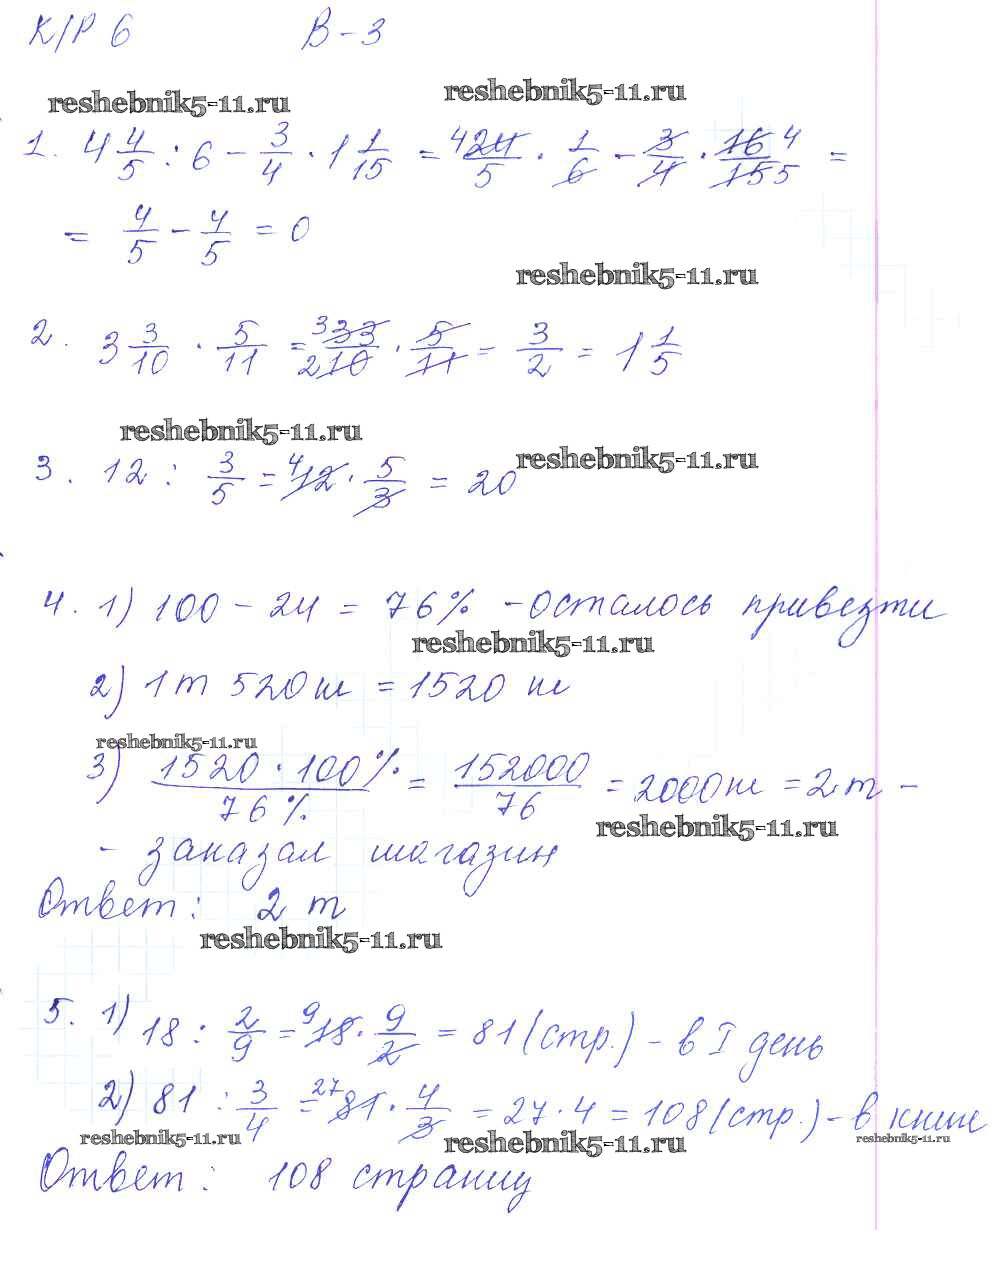 К/Р 6 В-3
reshebnik5-11.ru reshebnik5-11.ru
1. 4 4/5 : 6 - 3/4 · 1 1/15 = 4 24/5 · 1/6 - 3/4 · 16/15 4 5 =
= 4/5 - 4/5 = 0
reshebnik5-11.ru
2. 3 3/10 · 5/11 = 3 33/2 10 · 5/11 = 3/2 = 1 1/5
reshebnik5-11.ru
3. 12 : 3/5 = 4 12 · 5/3 = 20
reshebnik5-11.ru
4. 1) 100 - 24 = 76% - осталось привезти
reshebnik5-11.ru
2) 1т 520 кг = 1520 кг
reshebnik5-11.ru
3) 1520 · 100%/76% = 152000/76 = 2000 кг = 2 т -
reshebnik5-11.ru
- заказал магазин
Ответ: 2 т
reshebnik5-11.ru
5. 1) 18 : 2/9 = 9 18 · 9/2 = 81 (стр.) - в I день
2) 81 : 3/4 = 27 81 · 4/3 = 27 · 4 = 108 (стр.) - в книге
reshebnik5-11.ru reshebnik5-11.ru reshebnik5-11.ru
Ответ: 108 страниц